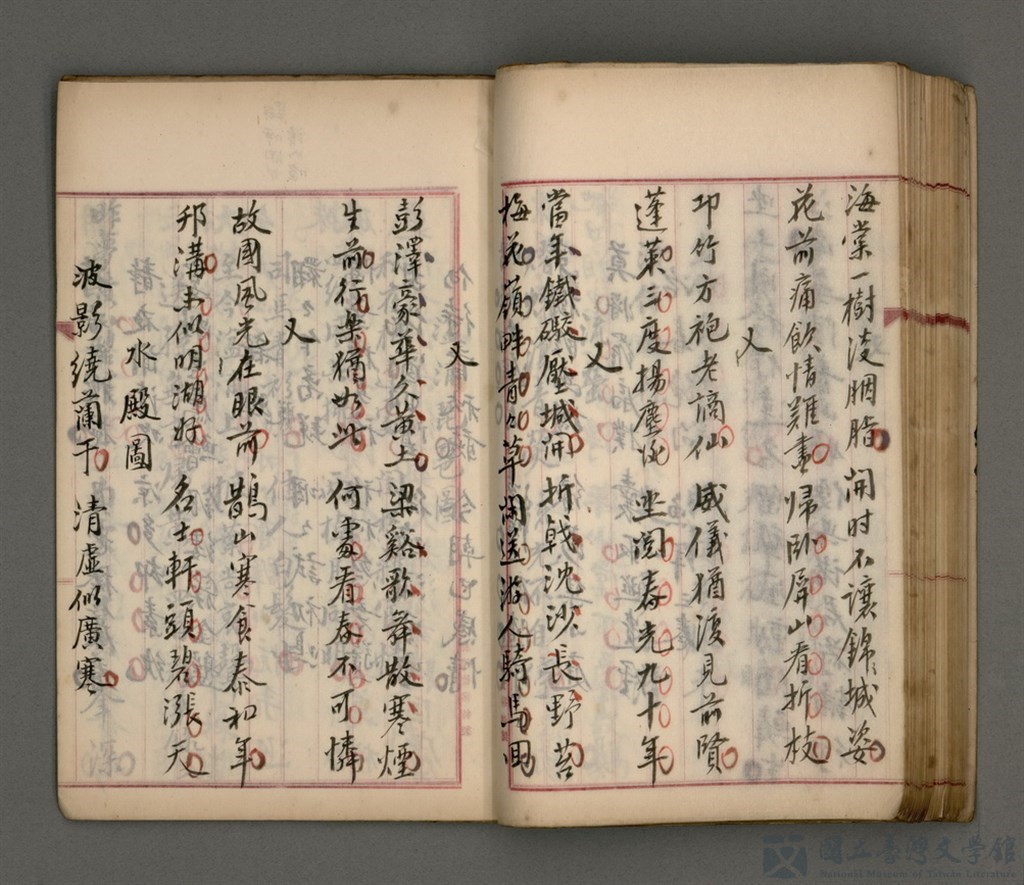 海棠一樹淩胭脂 開时不讓錦城姿
花前痛飲情難盡 歸卧屏山看折枝
又
邛竹方袍老謫仙 威儀猶復見前賢
蓬萊三度揚塵後 坐閱春光九十年
又
當年鐵礮壓城開 折戟沈沙長野苔
梅花嶺畔青々草 閑送游人騎馬回
又
彭澤豪華久黃土 梁谿歌舞散寒煙
生前行樂猶如此 何處看春不可憐
又
故國風光在眼前 鵲山寒食泰和年
邗溝未似明湖好 名士軒頭碧漲天
水殿圖
波影繞蘭干 清虛似廣寒
國立臺灣文學館
National Museum of Taiwan Literature